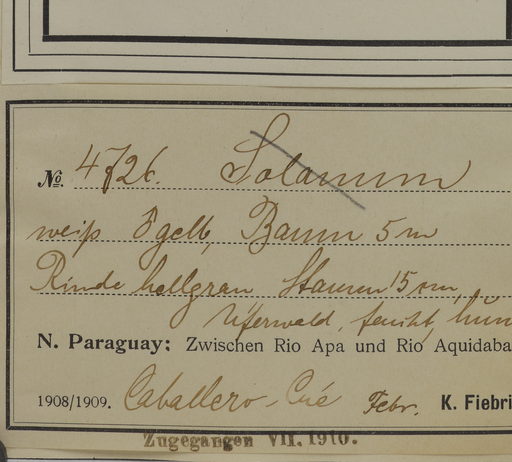 №. 4726. Solanum
weiß gelb, Baum 5 m
Rinde hellgrau Stamm 15 cm,
Uferwald, feucht,
N. Paraguay: Zwischen Rio Apa und Rio Aquidaba
1908/1909. Caballero-Cué Febr. K. Fiebri
Zugegangen VII. 1910.